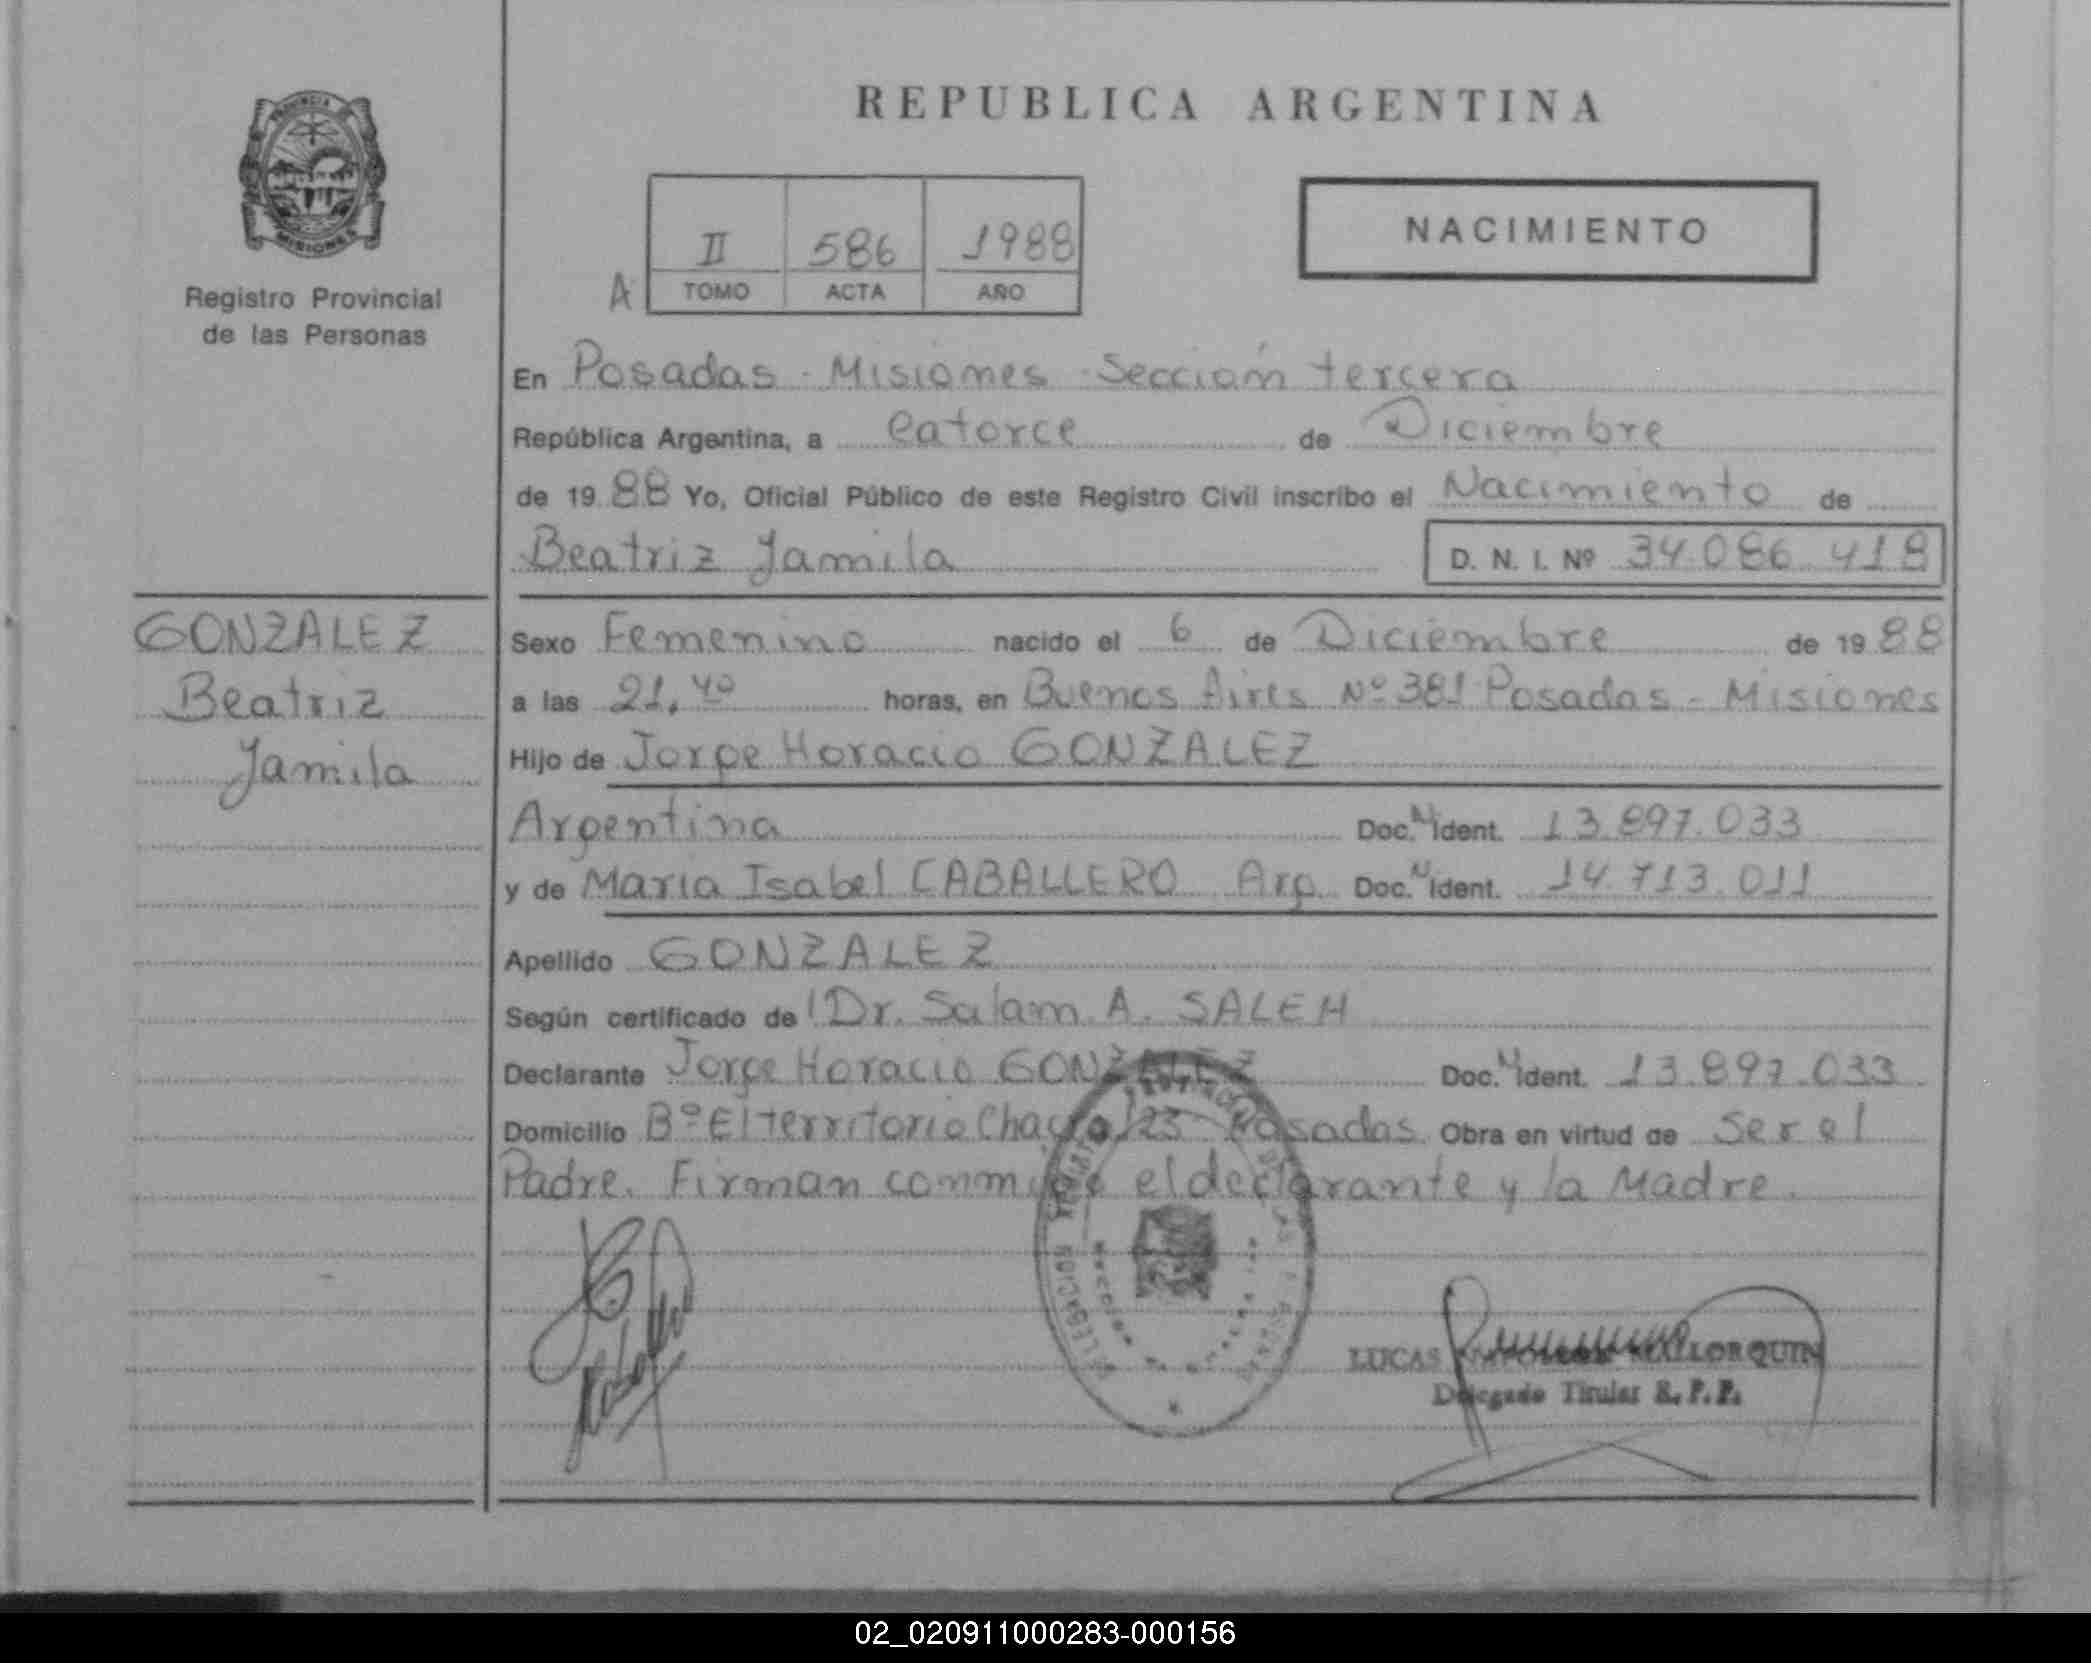 REPUBLICA ARGENTINA
PROVINCIA
MISIONES
Registro Provincial
de las Personas
II 586 1988
A TOMO ACTA AÑO
NACIMIENTO
En Posadas - Misiones - Sección tercera
República Argentina, a Catorce de Diciembre
de 1988 Yo, Oficial Público de este Registro Civil inscribo el Nacimiento de
Beatriz Jamila D. N. I. Nº 34.086.418
GONZALEZ
Beatriz
Jamila
Sexo Femenino nacido el 6 de Diciembre de 1988
a las 21,40 horas, en Buenos Aires Nº 381 Posadas - Misiones
Hijo de Jorge Horacio GONZALEZ
Argentina Doc. N Ident. 13.897.033
y de Maria Isabel CABALLERO Arg Doc. N Ident. 14.713.011
Apellido GONZALEZ
Según certificado de Dr. Salam A. SALEH
Declarante Jorge Horacio GONZALEZ Doc. N Ident. 13.897.033
Domicilio Bº El territorio Chacra 123 Posadas Obra en virtud de Ser el
Padre. Firman conmigo el declarante y la Madre.
LUCAS LLORQUIN
Delegado Titular R. P. P.
02_020911000283-000156